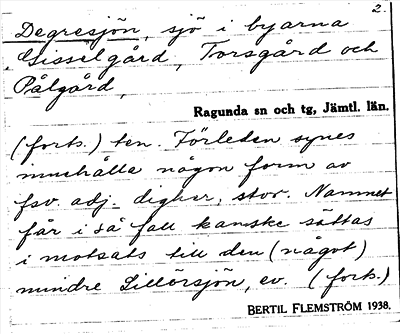 2.
Degresjön, sjö i byarna
Gisselgård, Torsgård och
Pålgård,
Ragunda sn och tg, Jämtl. län.
(forts.) ten. Förleden synes
innehålla någon form av
fsv. adj. digher, stor. Namnet
får i så fall kanske sättas
i motsats till den (något)
mindre Lillörsjön, ev. (forts.)
BERTIL FLEMSTRÖM 1938.